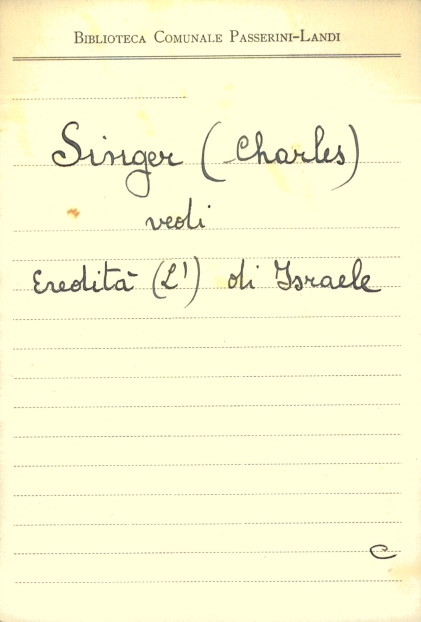 Biblioteca Comunale Passerini-Landi
Singer (Charles)
vedi
Eredità (L') di Israele
C